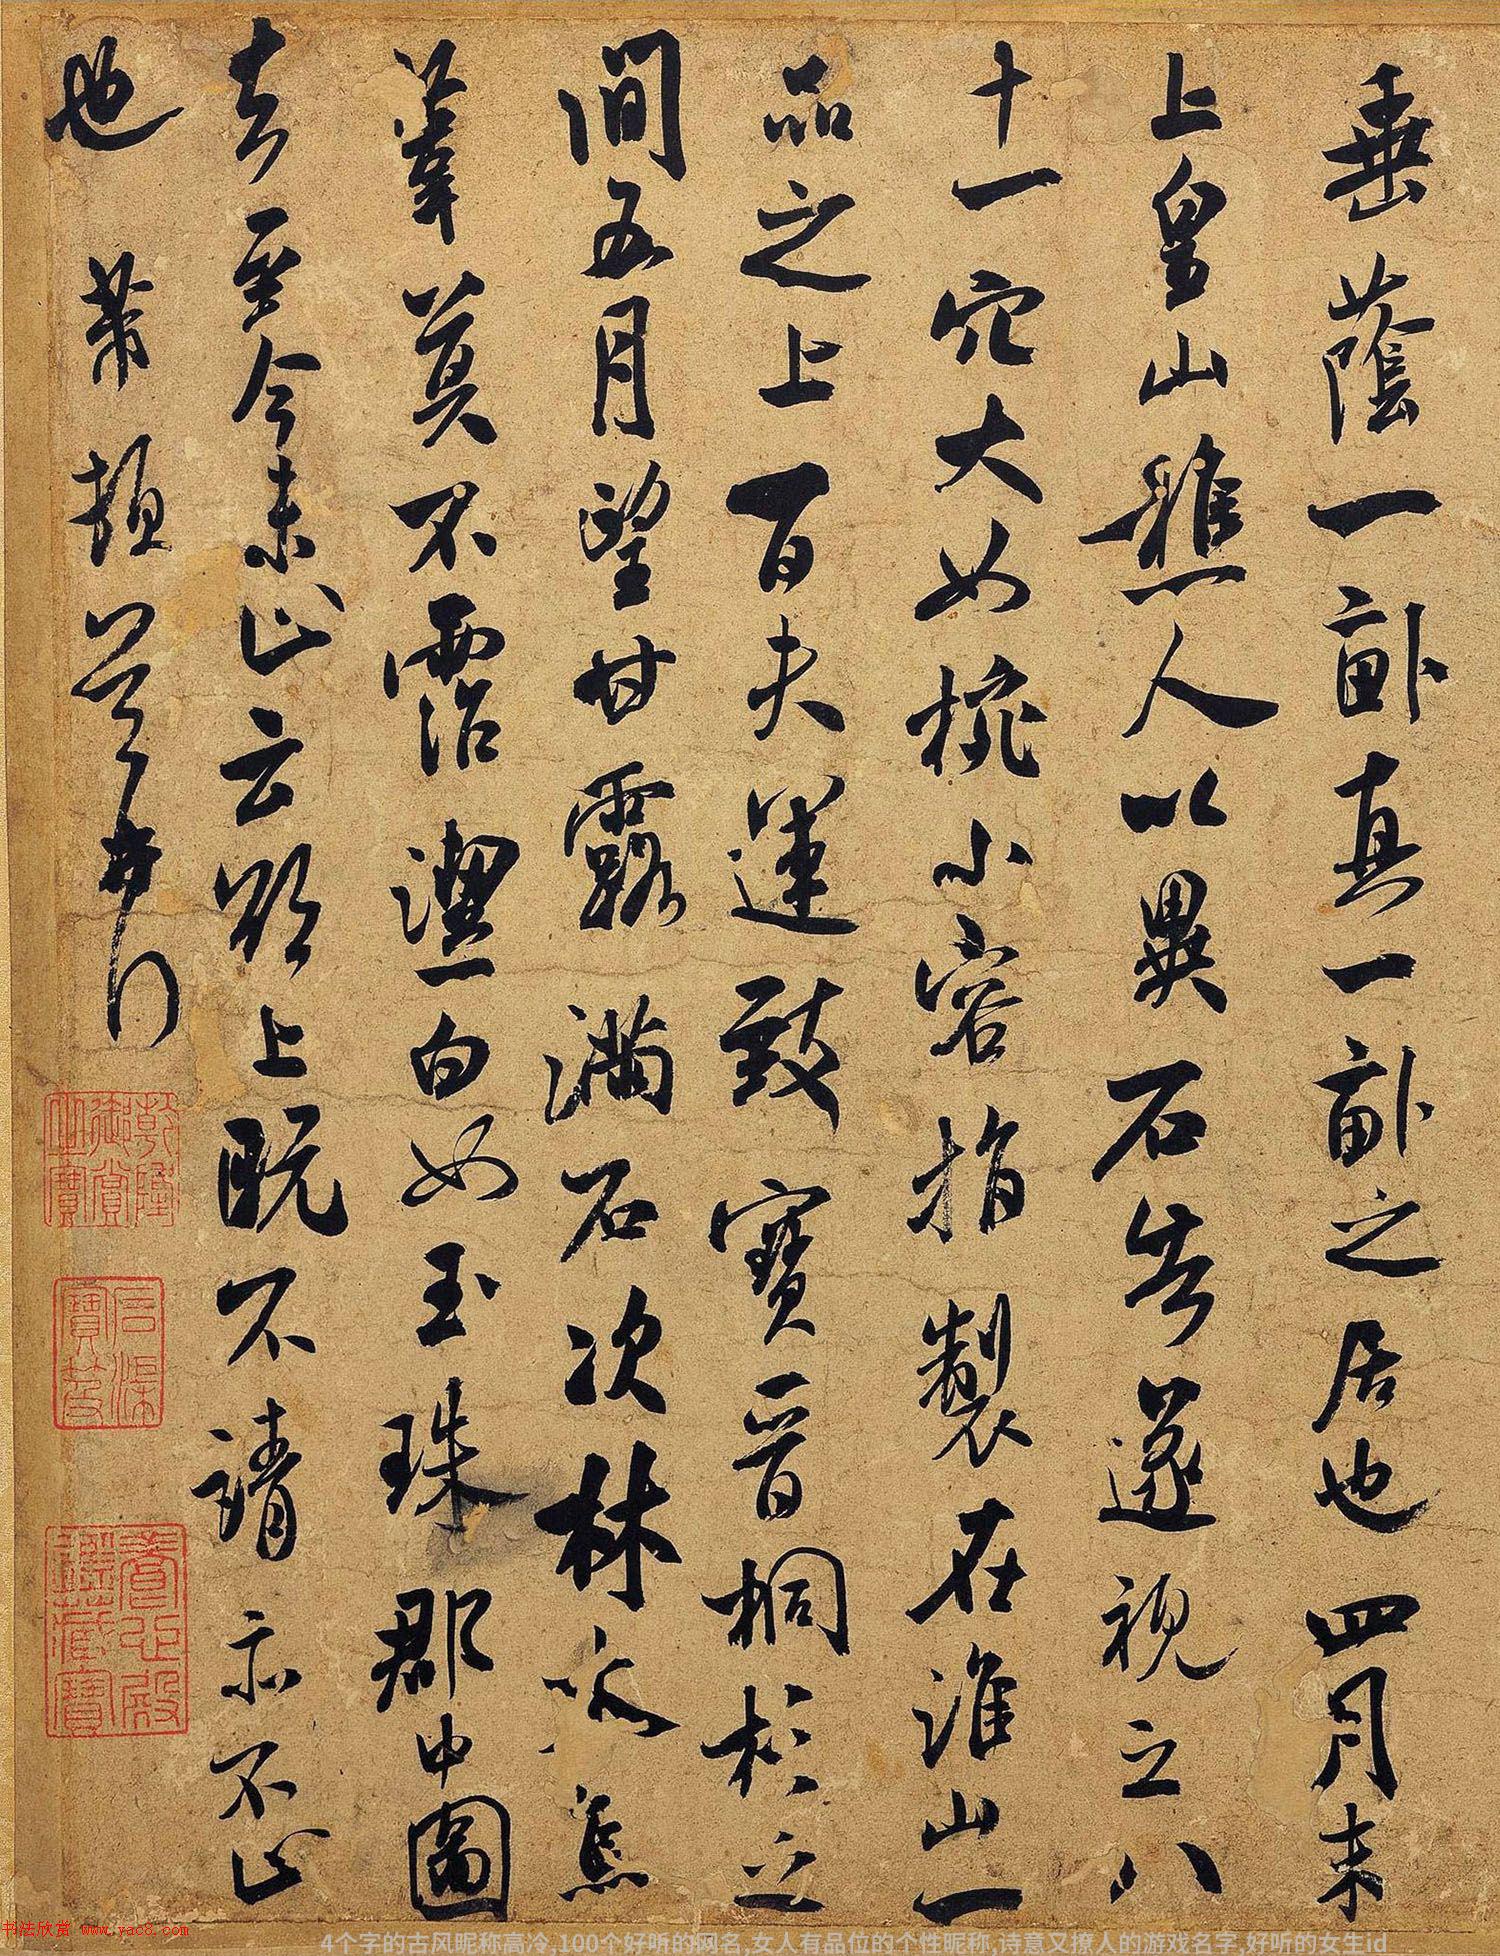 垂蔭一畝真一畝之居也四月末
上皇山樵人以異石告遂視之八
十一穴大如椀小容指製在淮山一
品之上百夫運致寶晉桐杉之
間五月望甘露滿石次林木焦
葦莫不霑潔白如玉珠郡中圖
去至今未止云欲上既不請亦不止
也芾頓首再行
乾隆御賞之寶
石渠寶笈
養心殿鑑藏寶
书法欣赏 www.yac8.com
4个字的古风昵称高冷,100个好听的网名,女人有品位的个性昵称,诗意又撩人的游戏名字,好听的女生id